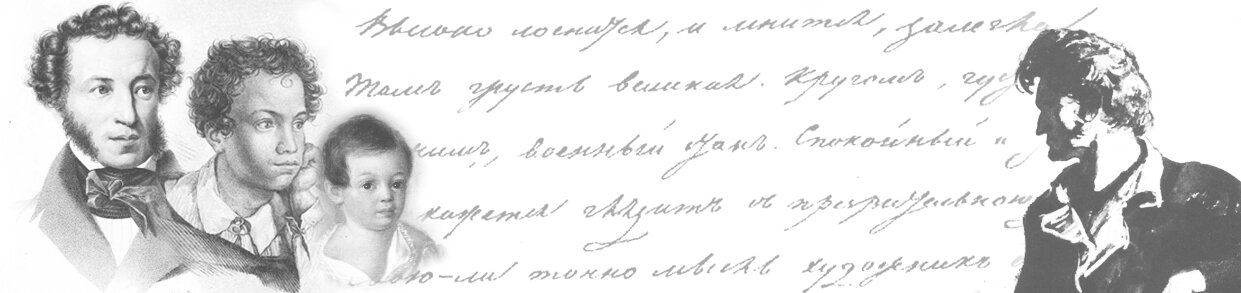 Высоко лоснится, и мнится, залегла
Тамъ грусть великая. Кругомъ, гу
нимъ, военный станъ. Спокойный и у
кажется глядитъ съ презрительною
вою-ли точно мысль художникъ